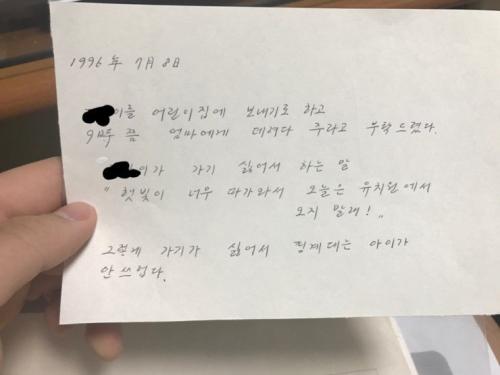 1996年 7月 8日
이를 어린이집에 보내기로 하고
9時쯤 엄마에게 데려다 주라고 부탁드렸다.
이가 가기 싫어서 하는 말
"햇빛이 너무 따가와서 오늘은 유치원에서
오지 말래!"
그렇게 가기가 싫어서 핑계대는 아이가
안쓰럽다.